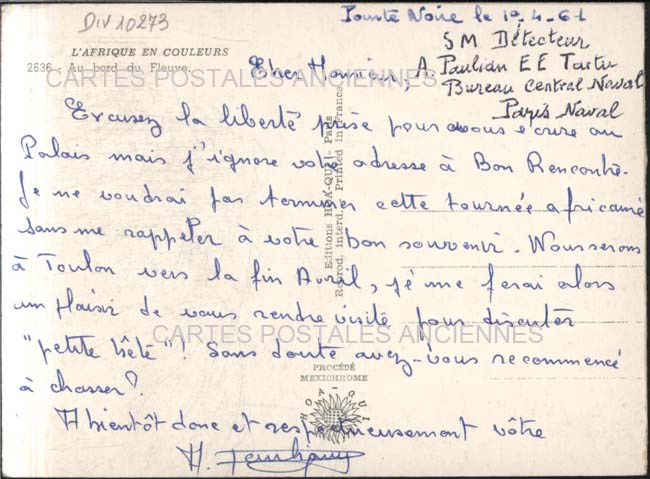 DIV 10273
Pointe Noire le 10-4-61
SM Détecteur
A Paulian EE Tartu
Bureau Central Naval
Paris Naval
L'AFRIQUE EN COULEURS
2636 - Au bord du Fleuve.
CARTES POSTALES ANCIENNES
Cher Monsieur,
Excusez la liberté prise pour vous écrire au
Palais mais j'ignore votre adresse à Bon Rencontre.
Je ne voudrai pas terminer cette tournée africaine
sans me rappeler à votre bon souvenir. Nous serons
à Toulon vers la fin Avril, je me ferai alors
un plaisir de vous rendre visite pour discuter
CARTES POSTALES ANCIENNES
"petite bête"! Sans doute avez-vous recommencé
à chasser?
A bientôt donc et respectueusement vôtre
A.
Editions HOA-QUI - Paris
Reprod. interd. Printed in France
PROCÉDÉ
MEXICHROME
HOA-QUI